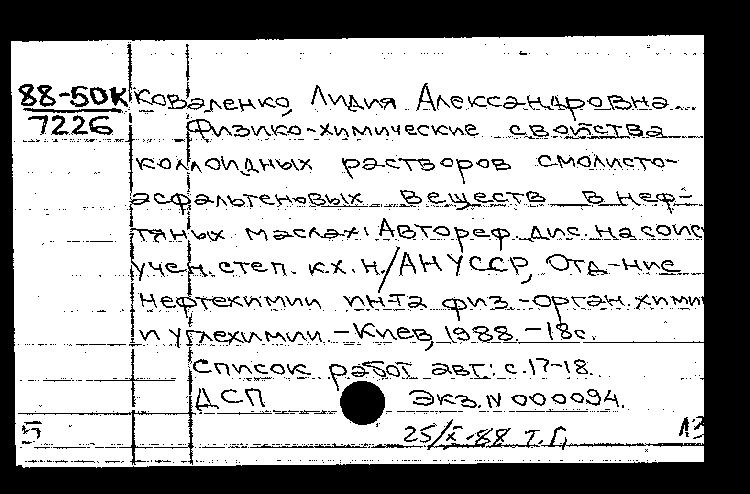 88-50К Коваленко, Лидия Александровна.
7226 Физико-химические свойства
коллоидных растворов смолисто-
асфальтеновых веществ в неф-
тяных маслах: Автореф. дис. на соис
учен. степ. к.х.н./АН УССР, Отд-ние
нефтехимии ин-та физ.-орган. хими
и углехимии. – Киев, 1988. – 18с.
Список работ авт.: с.17-18.
ДСП Экз. N 000094.
5 25/X-88 Т.Г, АЗ